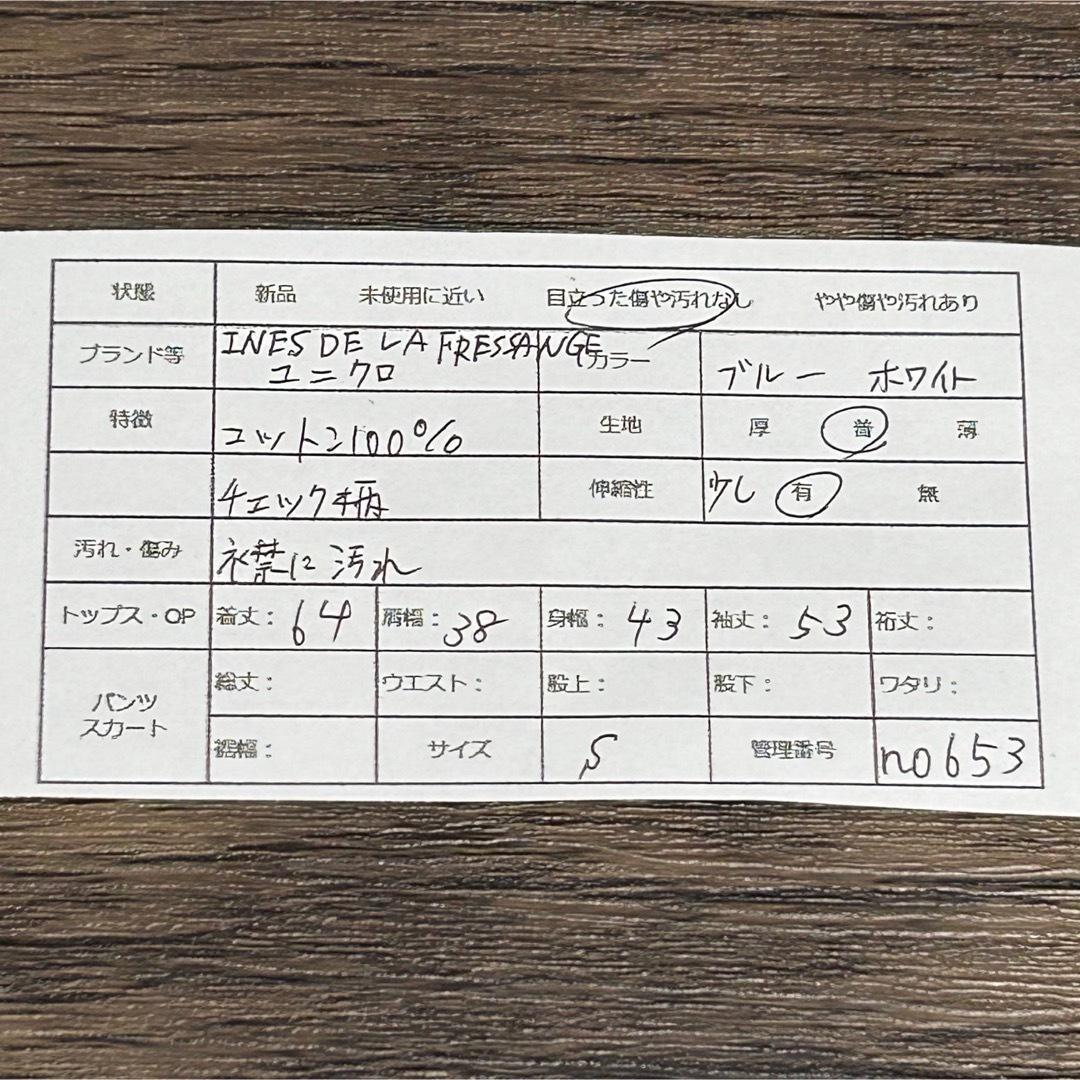 状態 新品 未使用に近い 目立った傷や汚れなし やや傷や汚れあり
ブランド等 INES DE LA FRESSANGE カラー ブルー ホワイト
ユニクロ
特徴 コットン100% 生地 厚 普 薄
チェック柄 伸縮性 少し 有 無
汚れ・傷み 衣襟に汚れ
トップス・OP 着丈: 64 肩幅: 38 身幅: 43 袖丈: 53 裄丈:
パンツ スカート 総丈: ウエスト: 股上: 股下: ワタリ:
裾幅: サイズ S 管理番号 no653